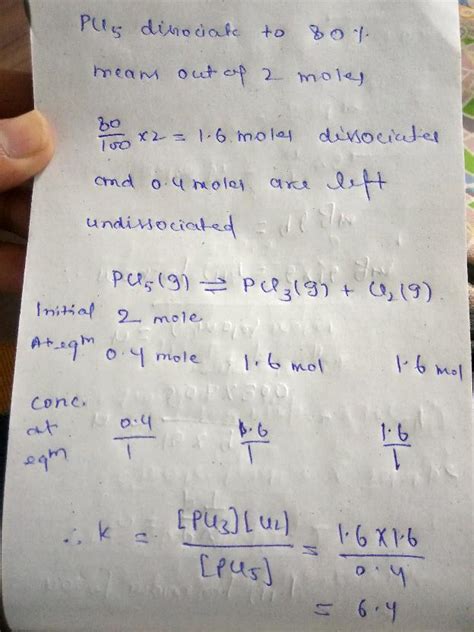 PCl5 dissociate to 80%
means out of 2 moles
80/100 × 2 = 1.6 moles dissociates
and 0.4 moles are left
undissociated
PCl5(g) ⇌ PCl3(g) + Cl2(g)
Initial 2 mole
At eqm 0.4 mole 1.6 mol 1.6 mol
conc. at eqm 0.4/1 1.6/1 1.6/1
∴ K = [PCl3][Cl2]/[PCl5] = 1.6×1.6/0.4
= 6.4